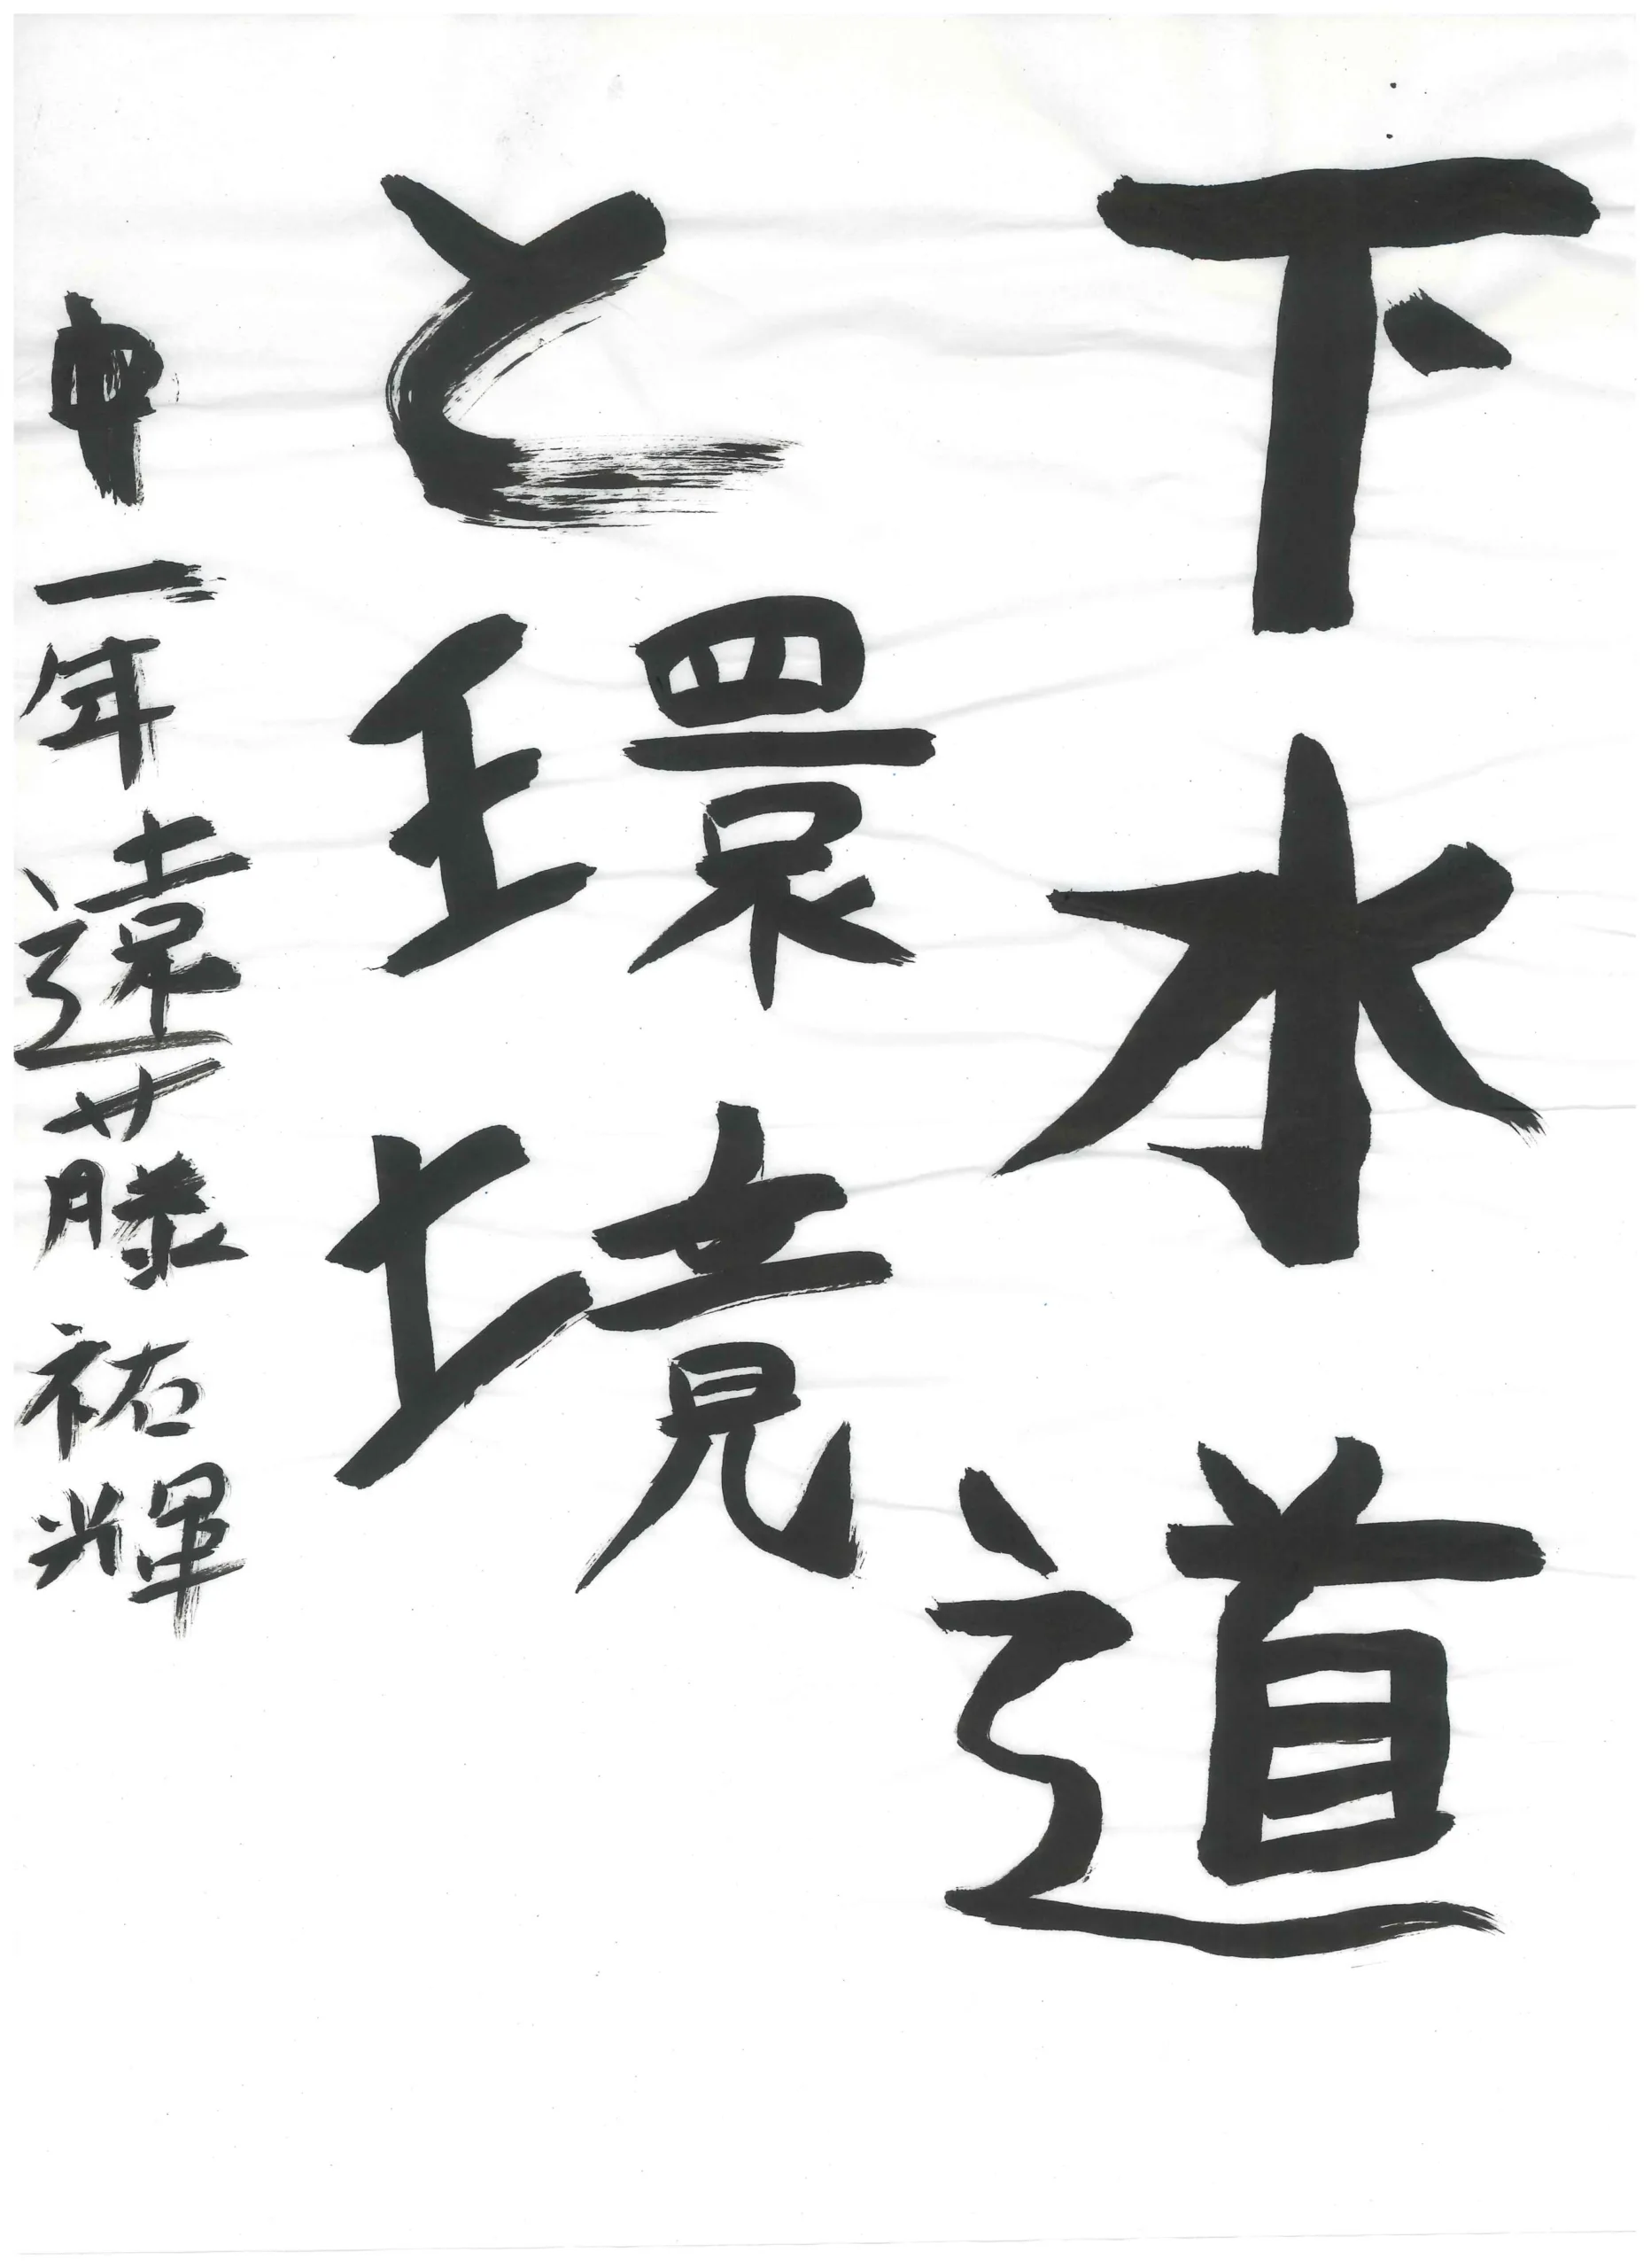 下水道
と環境
中一年遠藤祐輝